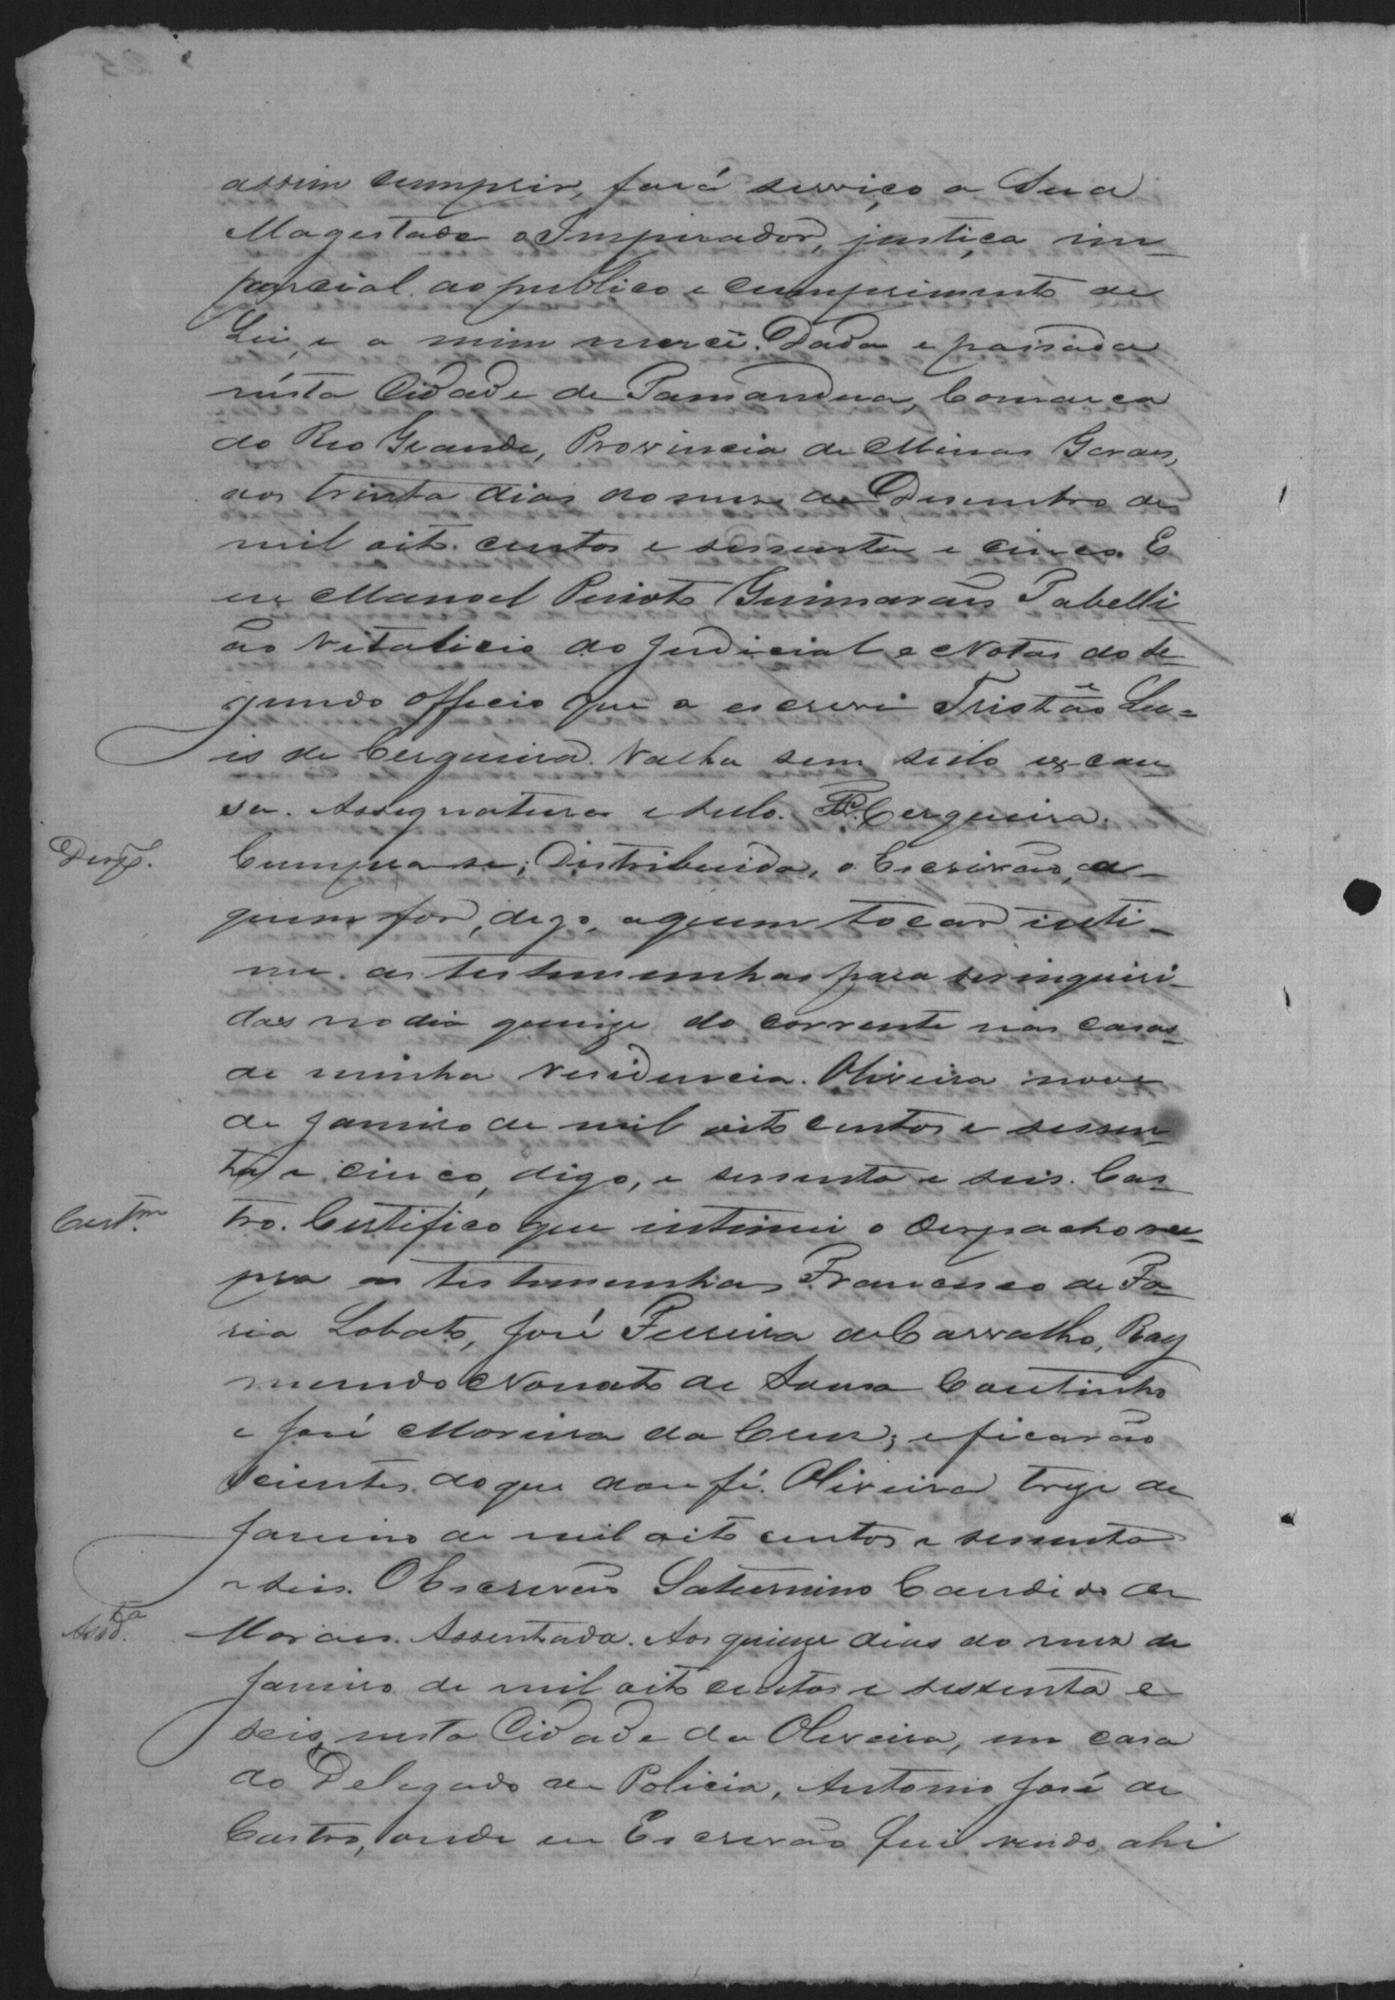 assim cumprir, fará serviço a Sua
Magestade o Imperador, justiça im-
parcial ao publico e cumprimento de
Lei, e a mim mercê. Dada e passada
nésta Cidade de Tamandua, Comarca
do Rio Grande, Provincia de Minas Geraes,
aos trinta dias do mez de Desembro de
mil oito centos e sessenta e cinco. E
eu Manoel Peixoto Guimarães Tabelli
ão Vitalicio do Judicial e Notas do se-
gundo officio que a escrevi Tristão Lu-
is de Cerqueira. Valha sem sello ex-cau-
sa. Assignatura e sello. Cerqueira.
Desp.º
Cumpra-se; Distribuida, o Escrivão, a
quem for, digo, aquem tocar inti-
me as testemunhas para ser inqueri-
das no dia quinze do corrente nas casas
de minha residencia. Oliveira nove
de Janeiro de mil oito centos e sessen-
ta e cinco, digo, e sessenta e seis. Cas-
Cert.m
tro. Certifico que intimei o despacho su-
pra as testemunhas Francisco de Fa-
ria Lobato, José Ferreira de Carvalho, Ray
mundo Nonato de Sousa Coutinho
e José Moreira da Cruz; e ficarão
scientes do que dou fé. Oliveira treze de
Janeiro de mil oito centos e sessenta
e seis. O Escrivão Saturnino Candido de
Assd.ta
Moraes. Assentada. Aos quinze dias do mez de
Janeiro de mil oito centos e sessenta e
seis, nesta Cidade da Oliveira, em casa
do Delegado de Policia, Antonio José de
Castro, onde eu Escrivão fui vindo, ahi